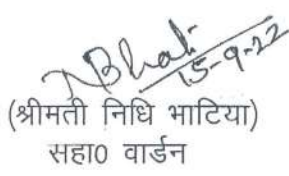 NBhati
15-9-22
(श्रीमती निधि भाटिया)
सहा0 वार्डन